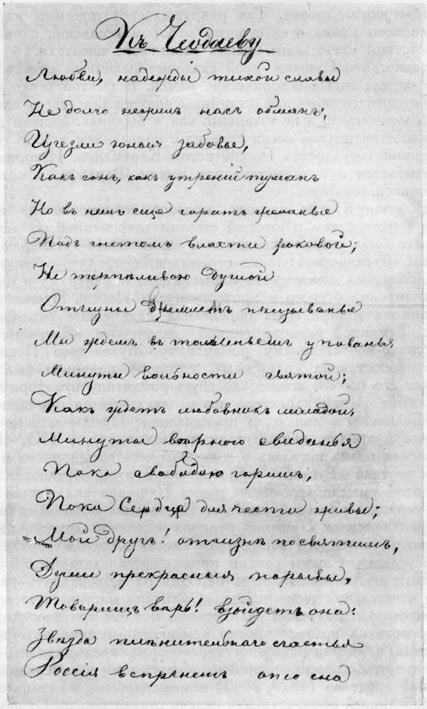 Къ Чеодаеву
Любви, надежды тихой славы
Не долго нежил насъ обманъ;
Изчезли юныя забовье,
Какъ сонъ, какъ утреній туманъ
Но въ насъ еще горитъ желанье
Подъ гнетомъ власти роковой;
Не терпаливою душой
Отчизны внемлемъ призыванье
Ми ждемъ въ томленьемъ упованья
Минуты вольности святой;
Какъ ждетъ любовникъ маладой
Минуты верного свиданья
Пока свабодаю горимъ,
Пока Сердца для чести живы;
Мой другъ! отчизнѣ посвятимъ,
Души прекрасныя порывы,
Товарищъ верь! взойдетъ она:
Звѣзда пленительнаго счастья
Россія вспрянетъ ото сна